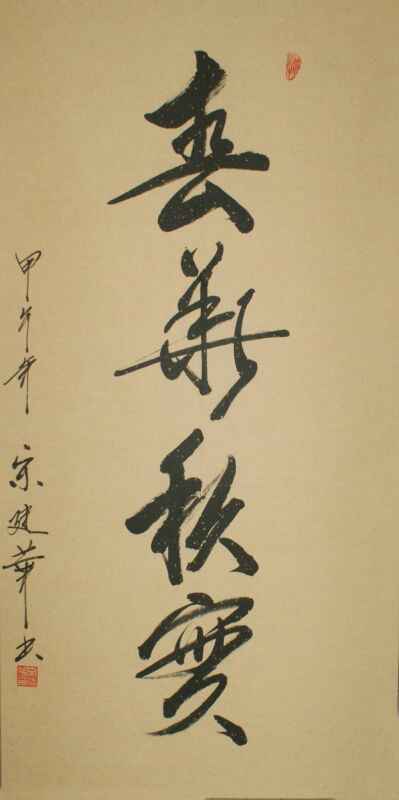 春華秋實
甲午年 宗建華书